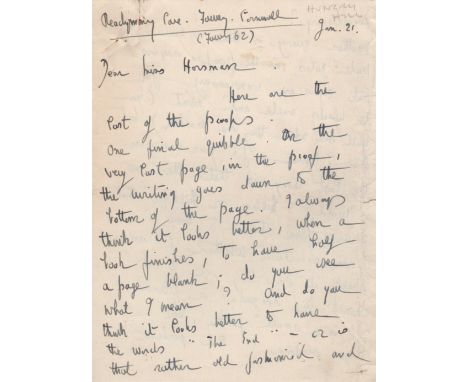 HUNGRY
HILL
Readymoney Cove. Fowey. Cornwall
(Fowey 62)
Jan. 21.
Dear Miss Horsman.
Here are the
last of the proofs.
One final quibble. On the
very last page, in the proof,
the writing goes down to the
bottom of the page. I always
think it looks better, when a
book finishes, to have half
a page blank; do you see
what I mean? and do you
think it looks better to have
the words "The End" - or is
that rather old fashioned and